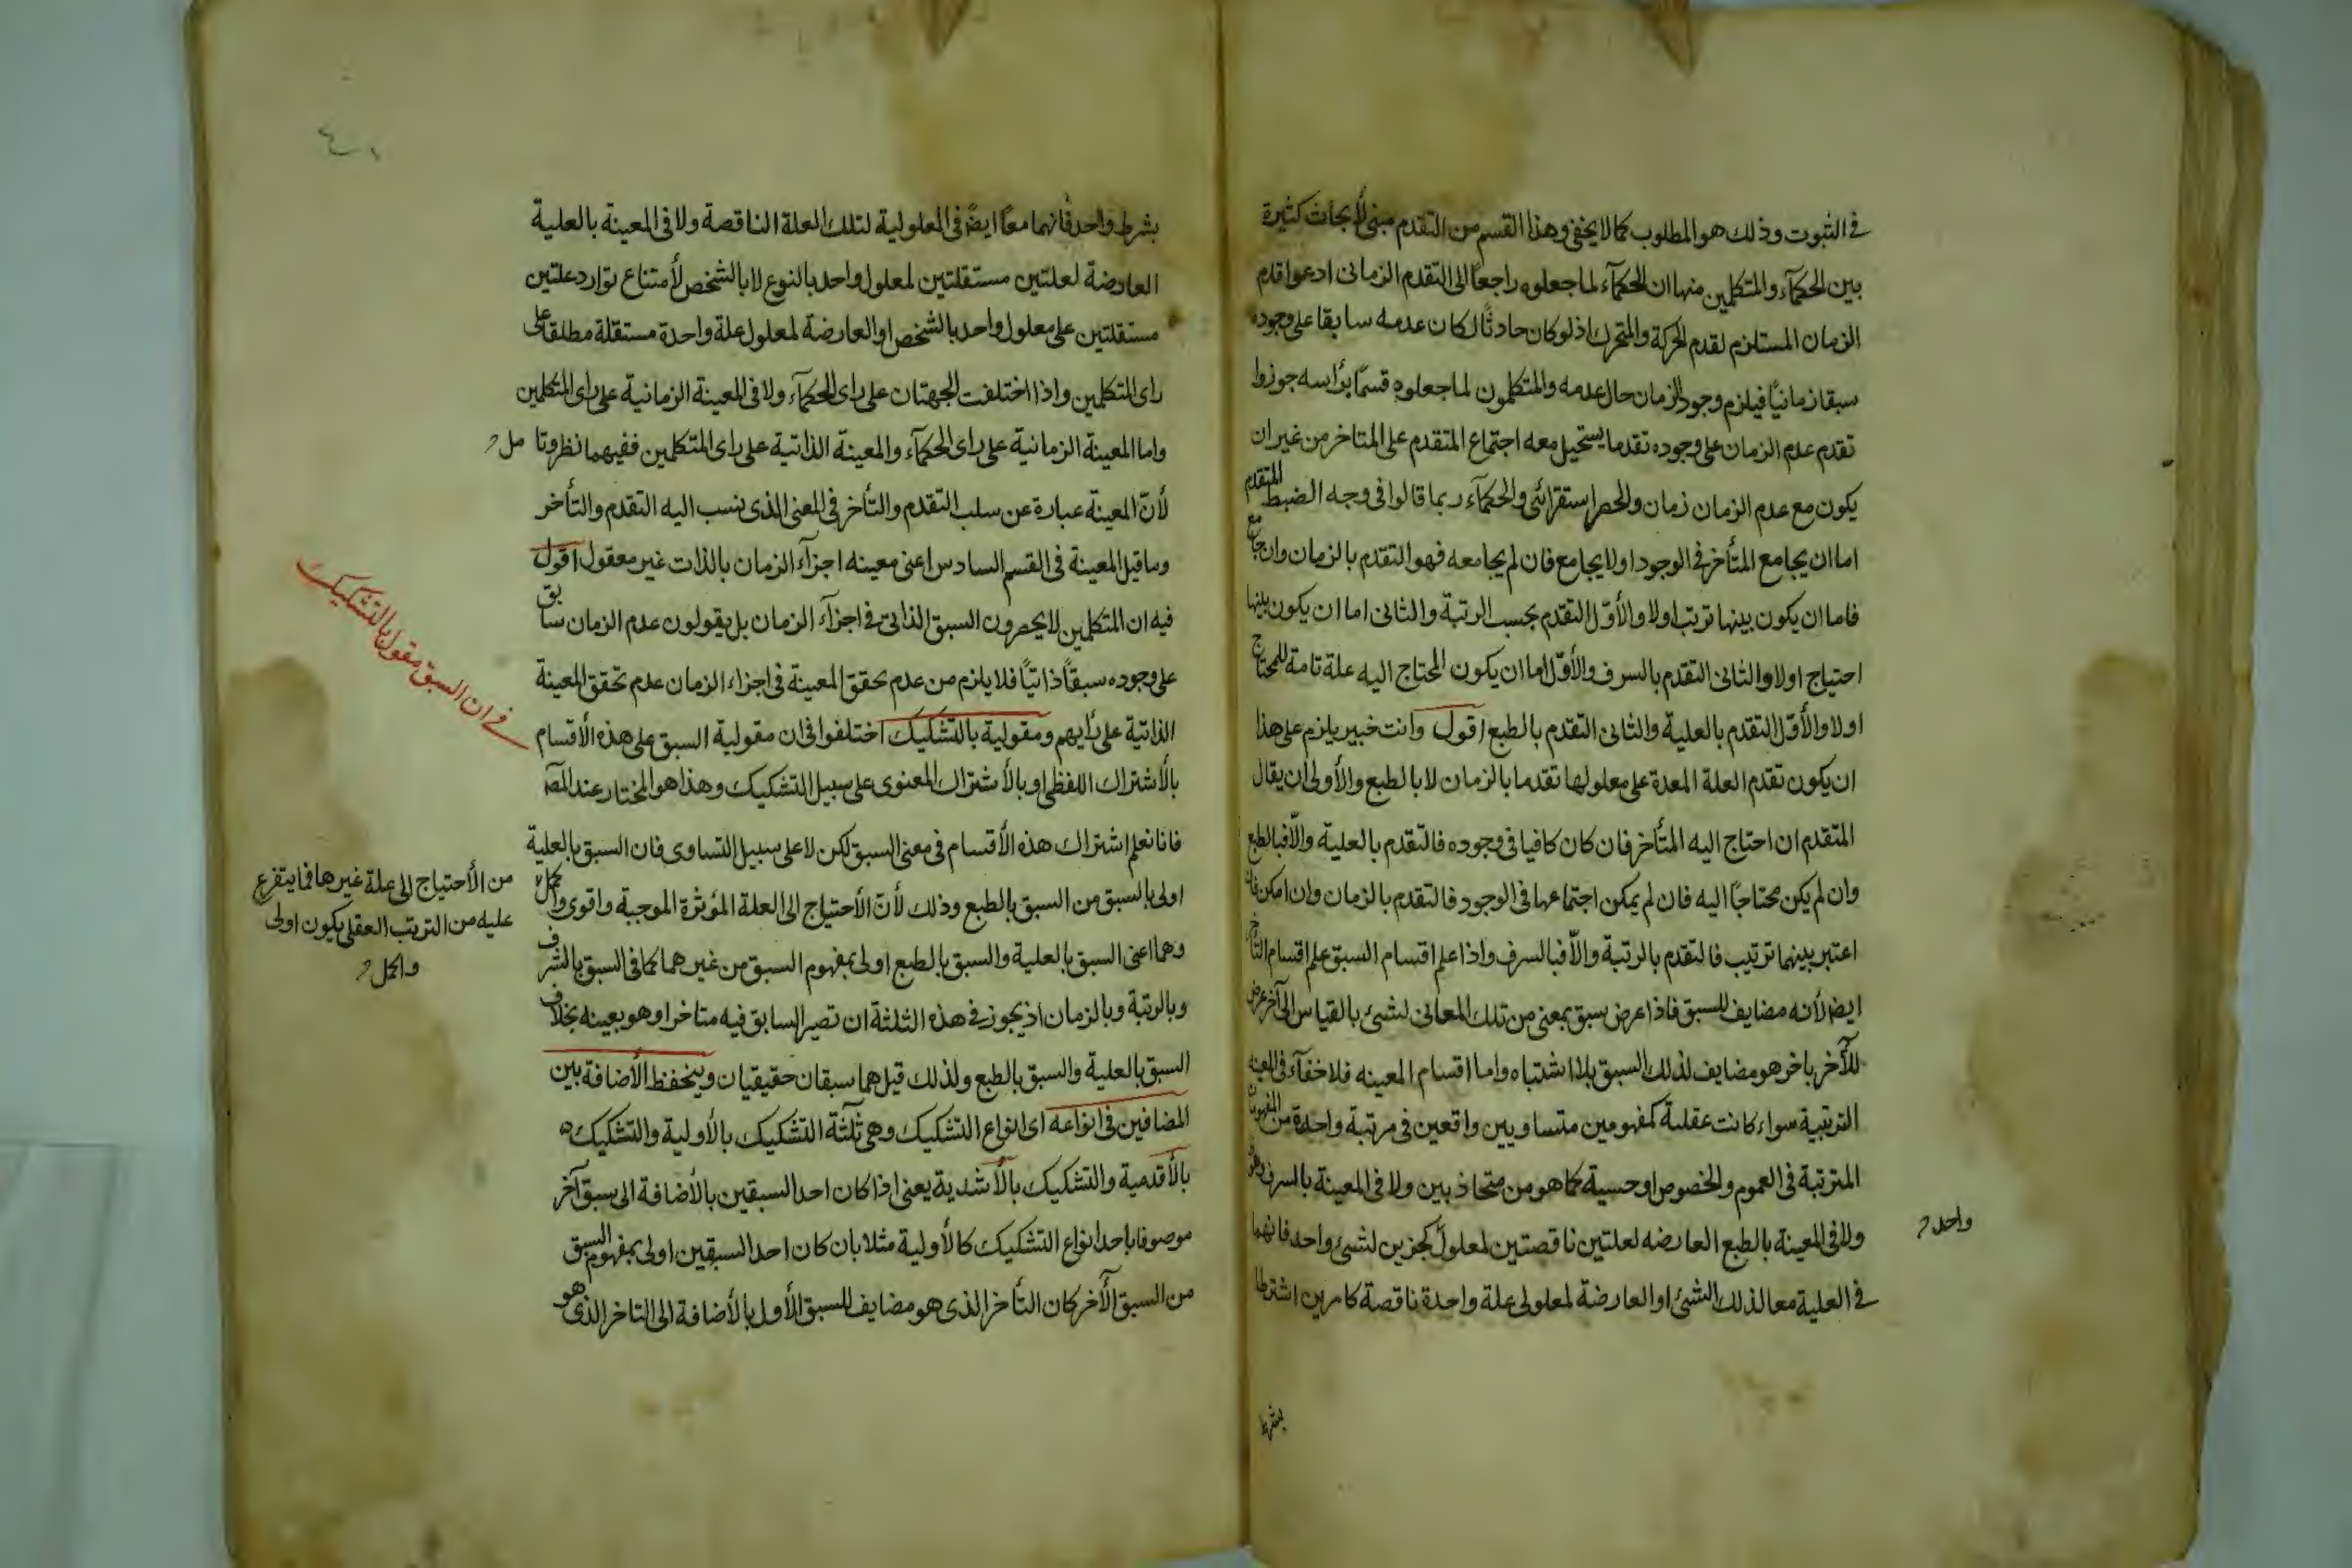 في الثبوت وذلك هو المطلوب كما لا يخفى وهذا القسم من التقدم مبنى لأبحاث كثيرة
بين الحكمآء والمتكلمين منها ان الحكمآء لما جعلوه راجعا الى التقدم الزمانى ادعوا قدم
الزمان المستلزم لقدم الحركة والمتحرك اذ لو كان حادثا لكان عدمه سابقا على وجوده
سبقا زمانيا فيلزم وجود الزمان حال عدمه والمتكلمون لما جعلوه قسما برأسه جوزوا
تقدم عدم الزمان على وجوده تقدما يستحيل معه اجتماع المتقدم على المتاخر من غير ان
يكون مع عدم الزمان زمان والحصر استقرائى والحكمآء ربما قالوا فى وجه الضبط المتقدم
اما ان يجامع المتأخر فى الوجود اولا يجامع فان لم يجامعه فهو التقدم بالزمان وان جامع
فاما ان يكون بينها ترتب اولا والأوّل التقدم بحسب الرتبة والثانى اما ان يكون بينها
احتياج اولا والثانى التقدم بالسرف والأوّل اما ان يكون المحتاج اليه علة تامة للمحتاج
اولا والأوّل التقدم بالعلية والثانى التقدم بالطبع اقول وانت خبير يلزم على هذا
ان يكون تقدم العلة المعدة على معلولها تقدما بالزمان لا بالطبع والأولى ان يقال
المتقدم ان احتاج اليه المتأخر فان كان كافيا فى وجوده فالتقدم بالعلية والّا فبالطبع
وان لم يكن محتاجا اليه فان لم يمكن اجتماعها فى الوجود فالتقدم بالزمان وان امكن فان
اعتبر بينهما ترتيب فالتقدم بالرتبة والّا فبالسرف واذا علم اقسام السبق علم اقسام التأخر
ايضا لأنه مضايف للسبق فاذا عرض سبق بمعنى من تلك المعانى لشئ بالقياس الى آخر عرض
للآخر باخر هو مضايف لذلك السبق بلا اشتباه واما اقسام المعينه فلا خفآء فى المعينه
الترتيبية سواء كانت عقلية كمفهومين متساويين واقعين فى مرتبة واحدة من المفهومات
المترتبة فى العموم والخصوص او حسية كما هو من متحاذيين ولا فى المعينة بالسرف وهو
ولا فى المعينة بالطبع العارضه لعلتين ناقصتين لمعلول كجزين لشئ واحد فانهما
واحد
في العلية معا لذلك الشئ او العارضة لمعلولى علة واحدة ناقصة كامرين اشترطا
بشرط
بشرط واحد فانهما معا ايضا فى المعلولية لتلك العلة الناقصة ولا فى المعينة بالعلية
العارضة لعلتين مستقلتين لمعلول واحد بالنوع لا بالشخص لأمتناع توارد علتين
مستقلتين على معلول واحد بالشخص او العارضة لمعلول علة واحدة مستقلة مطلقا على
راى المتكلمين واذا اختلفت الجهتان على راى الحكمآء ولا فى المعينة الزمانية على راى المتكلمين
واما المعينة الزمانية على راى الحكمآء والمعينة الذاتية على راى المتكلمين ففيهما نظر وتا مل
لأنّ المعينة عبارة عن سلب التقدم والتأخر فى المعنى الذى نسب اليه التقدم والتأخر
وما قيل المعينة فى القسم السادس اعنى معينه اجزآء الزمان بالذات غير معقول اقول
فيه ان المتكلمين لا يحصرون السبق الذاتى فى اجزآء الزمان بل يقولون عدم الزمان سابق
على وجوده سبقا ذاتيا فلا يلزم من عدم تحقق المعينة فى اجزاء الزمان عدم تحقق المعينة
الذاتية على رأيهم ومقولية بالتشكيك اختلفوا فى ان مقولية السبق على هذه الأقسام
في ان السبق مقول بالتشكيك
بالأشتراك اللفظى او بالأشتراك المعنوى على سبيل التشكيك وهذا هو المختار عند المص
فانا نعلم اشتراك هذه الأقسام فى معنى السبق لكن لا على سبيل التساوى فان السبق بالعلية
اولى بالسبق من السبق بالطبع وذلك لأنّ الأحتياج الى العلة المؤثرة الموجبة واقوى واكمل
من الأحتياج الى علة غيرها فما يتفرع
عليه من الترتب العقلى يكون اولى
واكمل
وهما اعنى السبق بالعلية والسبق بالطبع اولى بمفهوم السبق من غيرهما كما فى السبق بالشرف
وبالرتبة وبالزمان اذ يجوز فى هذه الثلثة ان تصير السابق فيه متاخرا وهو بعينه بخلاف
السبق بالعلية والسبق بالطبع ولذلك قيل هما سبقان حقيقيان وينحفظ الأضافة بين
المضافين فى انواعه اى انواع التشكيك وهى ثلثة التشكيك بالأولية والتشكيك
بالأقدمية والتشكيك بالأشدية يعنى اذا كان احد السبقين بالأضافة الى سبق آخر
موصوفا باحد انواع التشكيك كالأولية مثلا بان كان احد السبقين اولى بمفهوم السبق
من السبق الآخر كان التأخر الذى هو مضايف للسبق الأول بالأضافة الى التاخر الذى هو